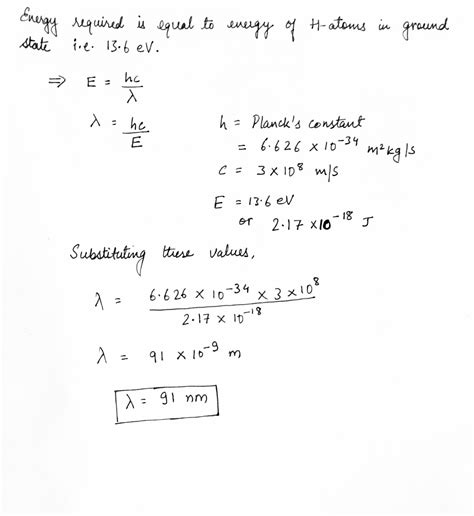 Energy required is equal to energy of H-atoms in ground
state i.e. 13.6 eV.
⇒ E = hc/λ
λ = hc/E
h = Planck's constant
= 6.626 × 10⁻³⁴ m²kg/s
C = 3 × 10⁸ m/s
E = 13.6 eV
or 2.17 × 10⁻¹⁸ J
Substituting these values,
λ = 6.626 × 10⁻³⁴ × 3 × 10⁸ / 2.17 × 10⁻¹⁸
λ = 91 × 10⁻⁹ m
λ = 91 nm